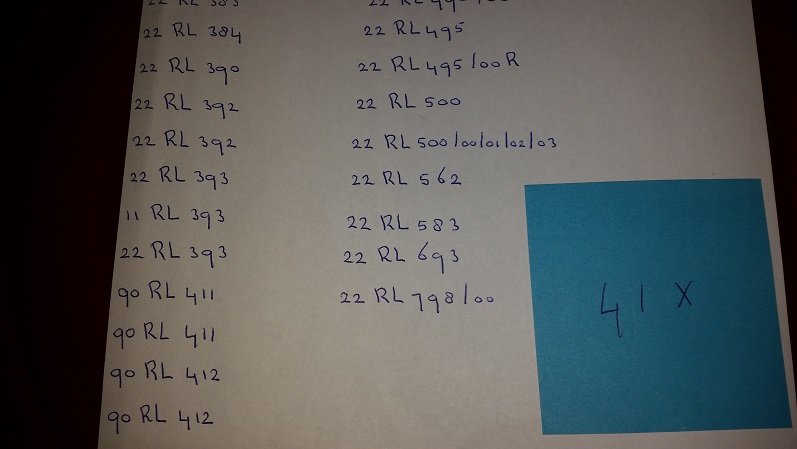 22 RL 383
22 RL 384
22 RL 390
22 RL 392
22 RL 392
22 RL 393
11 RL 393
22 RL 393
90 RL 411
90 RL 411
90 RL 412
90 RL 412
22 RL
22 RL 495
22 RL 495/00R
22 RL 500
22 RL 500/00/01/02/03
22 RL 562
22 RL 583
22 RL 693
22 RL 798/00
41 X